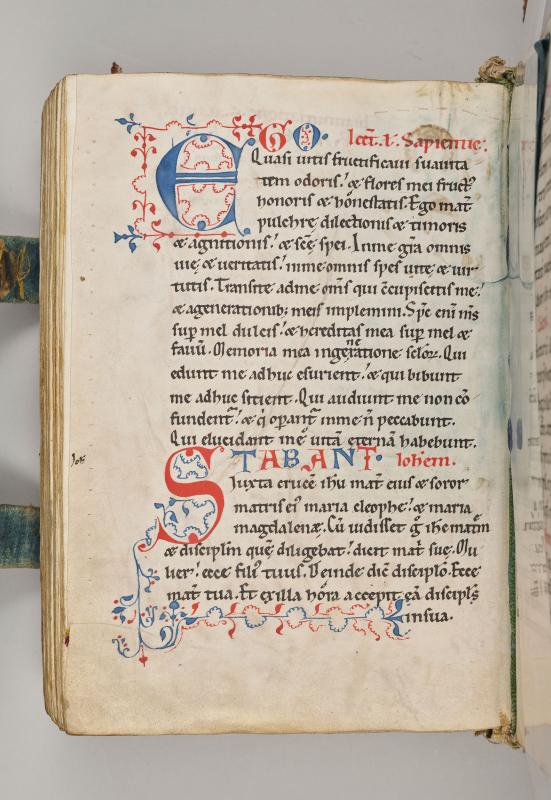 EGO. lect̄. l. Sapientie.
Quasi uitis fructificaui suauita
tem odoris. ⁊ flores mei fruct᷒
honoris ⁊ honestatis. Ego mat̄
pulchre dilectionis ⁊ timoris
⁊ agnitionis. ⁊ sc̄e spei. Inme gr̄a omnis
uie ⁊ ueritatis. inme omnis spes uite ⁊ uir
tutis. Transite adme om̄s qui c̄cupiscitis me.
⁊ agenerationib; meis implemini. Sp̄c eni᷒ m̄s
sup mel dulcis. ⁊ hereditas mea sup mel ⁊
fauū. Memoria mea ingeneratione sc̄lor᷒. Qui
edunt me adhuc esurient. ⁊ qui bibunt
me adhuc sitient. Qui audiunt me non cō
fundent᷒. ⁊ q̇ operant᷒ inme n̄ peccabunt.
Qui elucidant me uitā eternā habebunt.
STABANT. Ioh̄em.
Iuxta crucē ih̄u mat̄ eius ⁊ soror
matris ei᷒ maria cleophe. ⁊ maria
magdalenæ. Cū uidisset g̊ ih̄c matrē
⁊ discipl̄m quē diligebat. dicit mat̄ sue. Mu
lier. ecce fili᷒ tuus. Deinde dic̄ discipl̄o. Ecce
mat̄ tua. Et exilla hora accepit eā discipl̄s
insua.